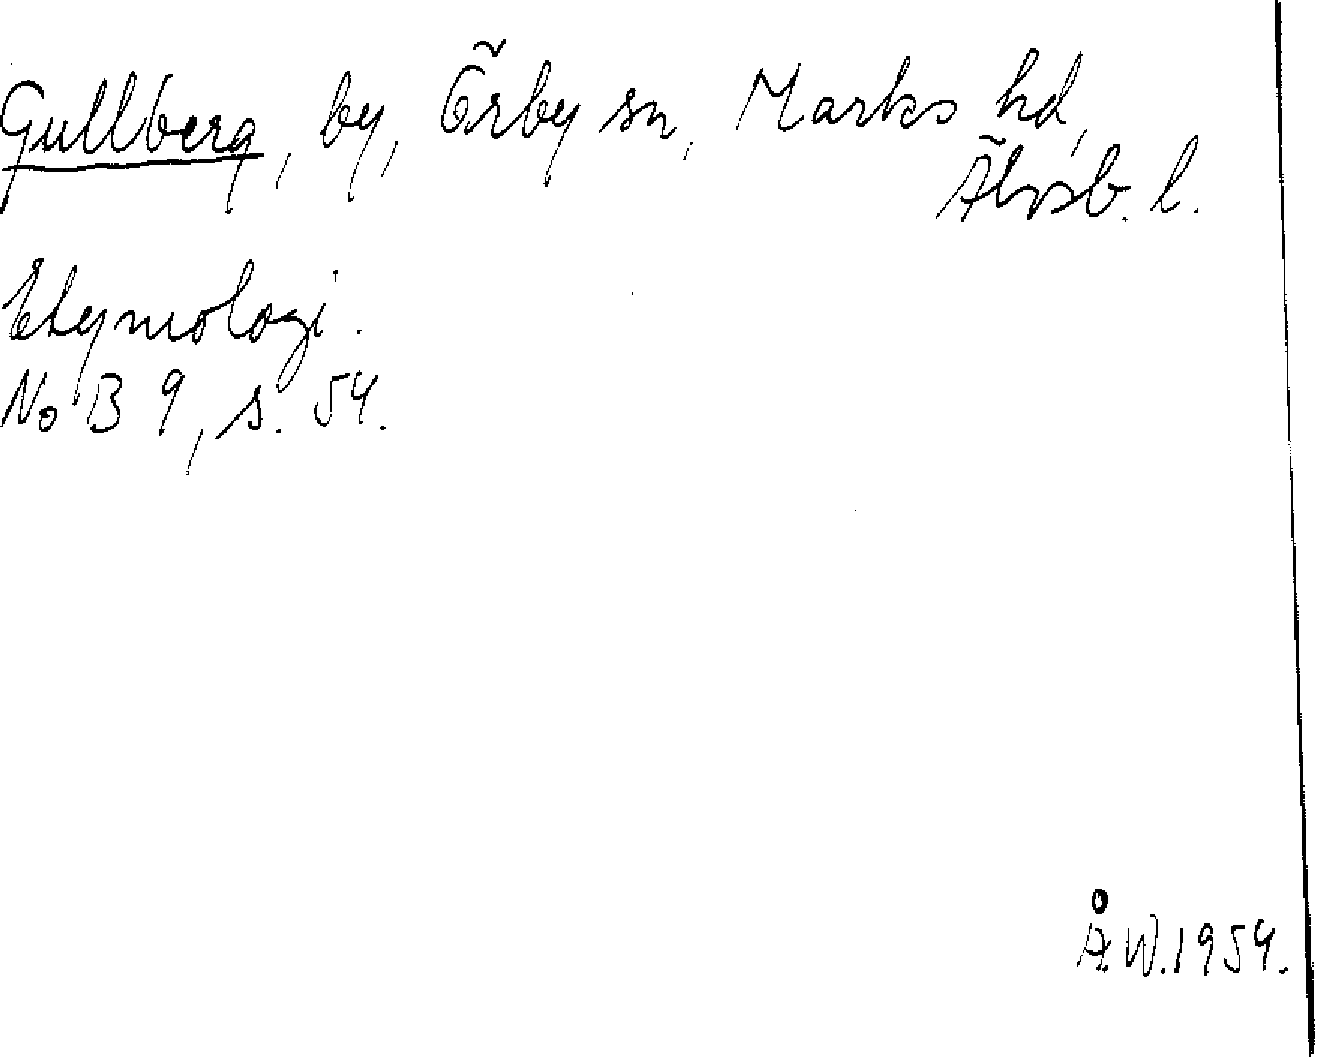 Gullberg, by, Örby sn, Marks hd,
Älvsb. l.
Etymologi.
NoB 9, s. 54.
Å.W.1954.